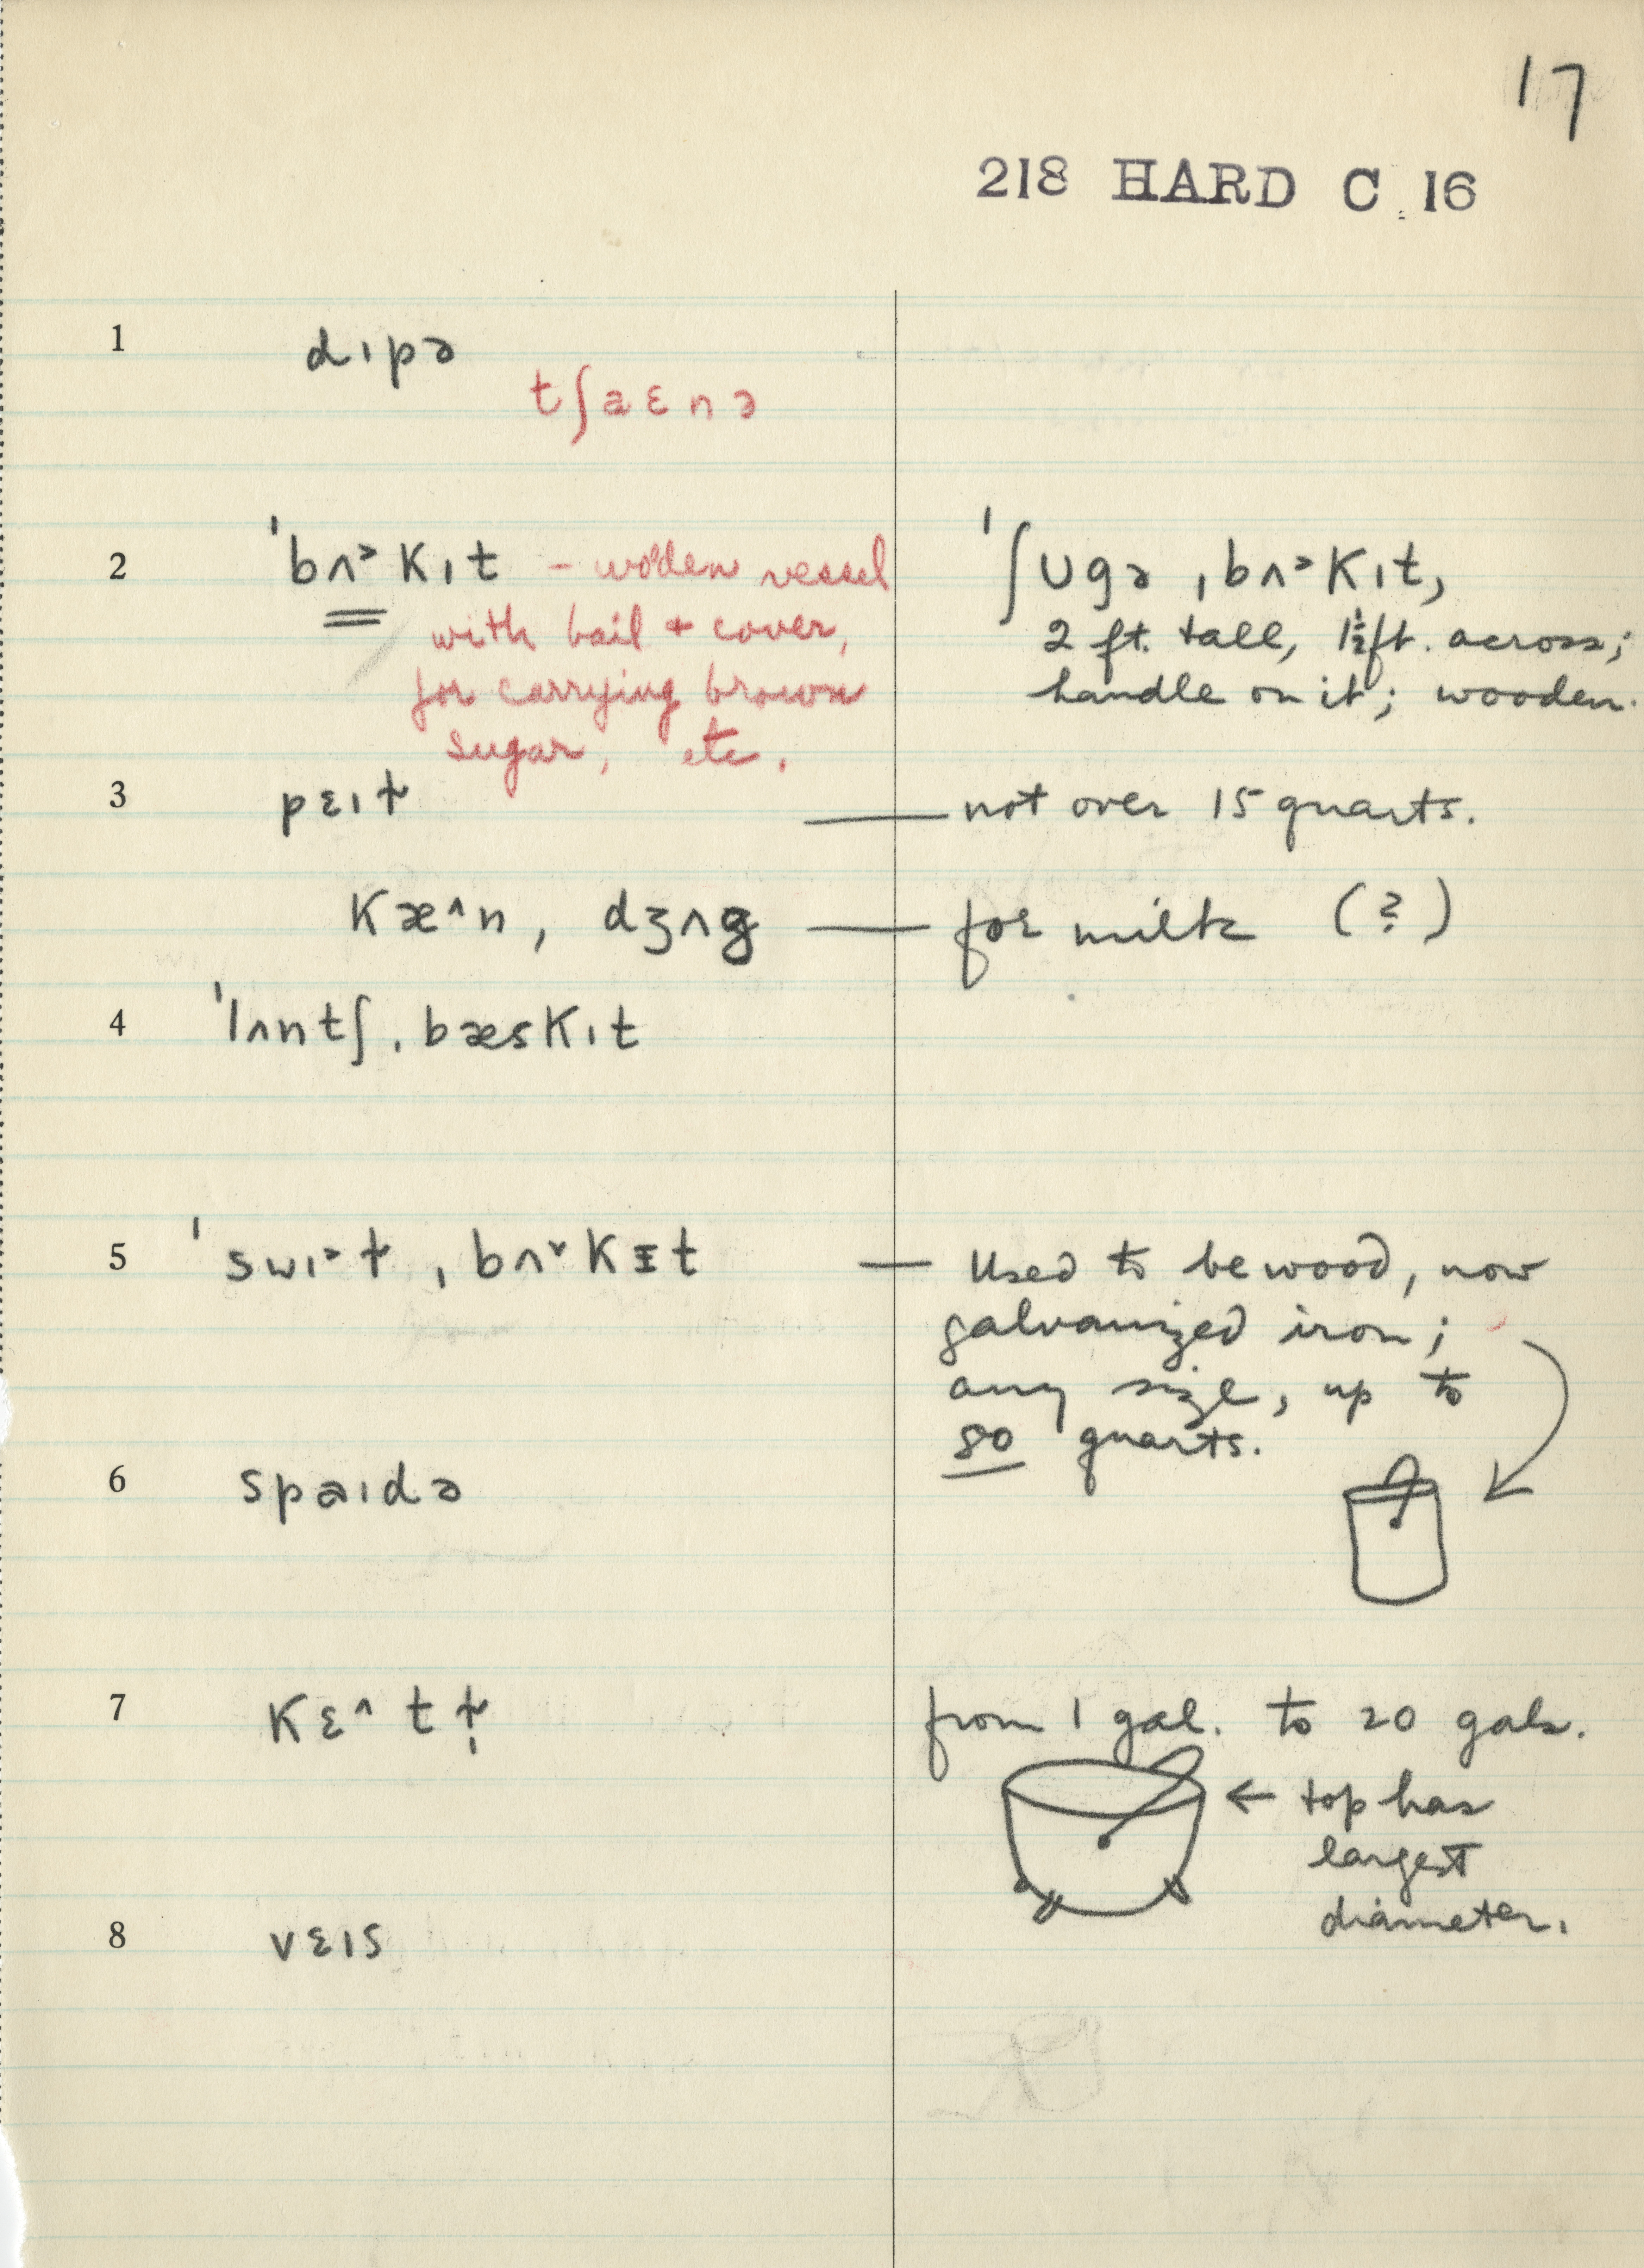 17
218 HARD C. 16
1 dɪpə
tʃaɛnə
2 ˈbʌ˃kɪt – wooden vessel
with bail + cover,
for carrying brown
sugar, etc.
ˈʃʊgə ˌbʌ˃kɪt,
2 ft. tall, 1½ ft. across;
handle on it; wooden.
3 pɛɪɫ — not over 15 quarts.
kæ^n, dʒʌg — for milk (?)
4 ˈlʌntʃˌbæskɪt
5 ˈswɪ˃ɫ ˌbʌ˅kɪt — Used to be wood, now
galvanized iron;
any size, up to
80 quarts.
6 spaɪdə
7 kɛ^tɫ̩ from 1 gal. to 20 gals.
← top has
largest
diameter.
8 vɛɪs